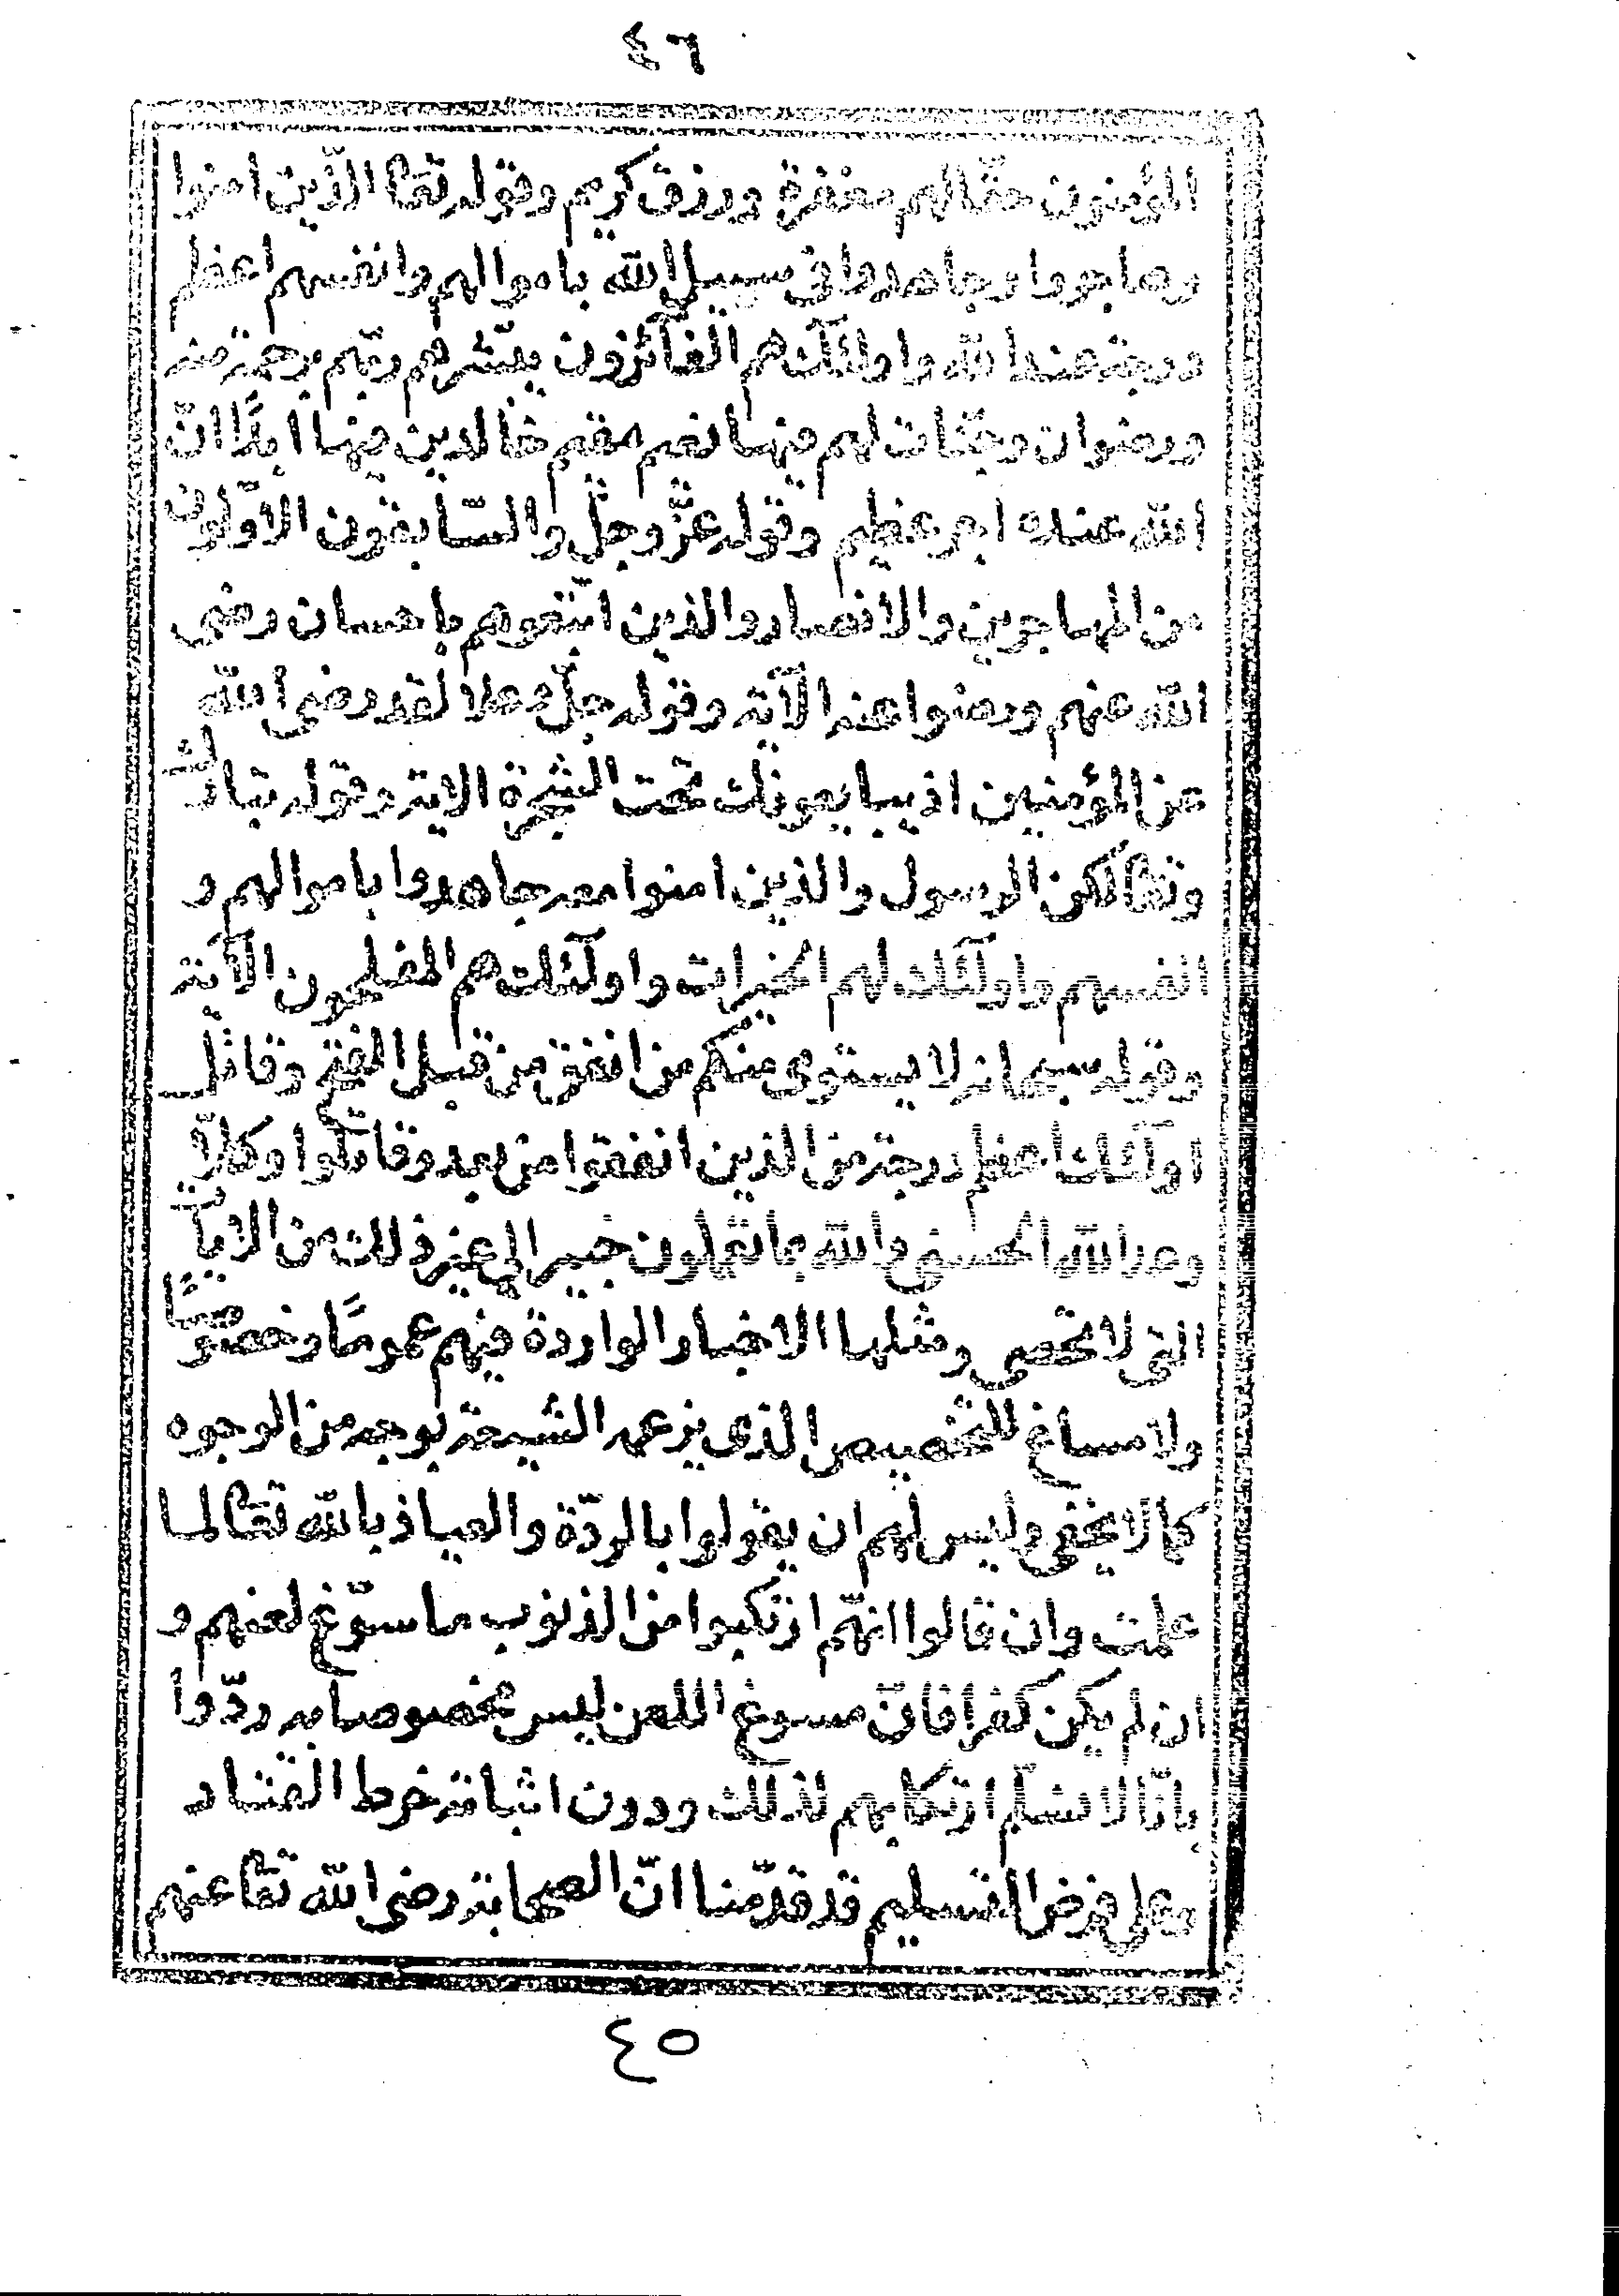 ٤٦
المؤمنون حقّا لهم مغفرة ورزق كريم وقوله تعا الذين امنوا
وهاجروا وجاهدوا فى سبيل الله باموالهم وانفسهم اعظم
درجة عند الله واولئك هم الفآئزون يبشّرهم ربّهم برحمة منه
ورضوان وجنّات لهم فيها نعيم مقيم خالدين فيها ابدًا انّ
الله عنده اجر عظيم وقوله عزّ وجلّ والسّابقون الاوّلون
من المهاجرين والانصار والذين اتّبعوهم باحسان رضى
الله عنهم ورضوا عنه الآية وقوله جلّ وعلا لقد رضى الله
عن المؤمنين اذ يبايعونك تحت الشجرة الاية وقوله تبارك
وتعا لكن الرسول والذين امنوا معه جاهدوا باموالهم و
انفسهم واولئك لهم الخيرات واولئك هم المفلحون الآية
وقوله سبحانه لا يستوى منكم من انفق من قبل الفتح وقاتل
اولئك اعظم درجة من الذين انفقوا من بعد وقاتلوا وكلاّ
وعد الله الحسنى والله بما تعملون خبير الى غير ذلك من الايات
التى لا تحصى ومثلها الاخبار الواردة فيهم عمومًا وخصوصًا
ولا مساغ للتخصيص الذى يزعمه الشيعة بوجه من الوجوه
كما لا يخفى وليس لهم ان يقولوا بالردّة والعياذ بالله تعا لما
علمت وان قالوا انهّم ارتكبوا من الذنوب ما سوّغ لعنهم و
ان لم يكن كفرا فانّ مسوغ اللعن ليس مخصوصا به ردّوا
بانّا لا نسلّم ارتكابهم لذلك ودون اثباته خرط القتاد
وعلى فرض التسليم قد قدّمنا انّ الصحابة رضى الله تعا عنهم
٤٥